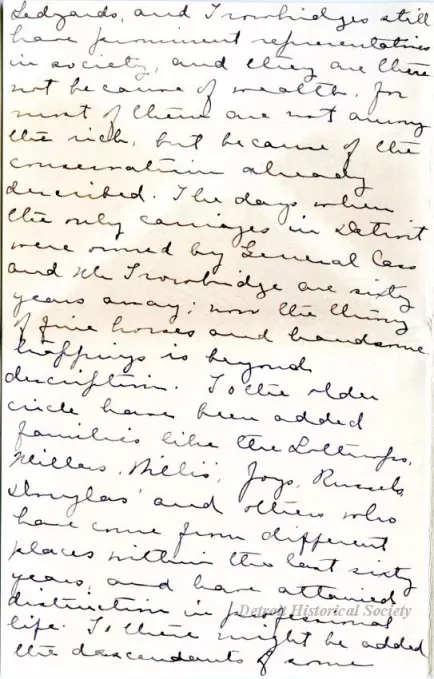 Ledyards, and Trowbridges still
have prominent representatives
in society, and they are there
not because of wealth, for
most of them are not among
the rich, but because of the
conservatism already
described. The days when
the only carriages in Detroit
were owned by General Cass
and Mr Trowbridge are sixty
years away; now the throng
of fine horses and handsome
trappings is beyond
description. To the older
circle have been added
families like the Lothrops,
Millers, Willis', Joys, Russels,
Douglas' and others who
have come from different
places within the last sixty
years, and have attained
distinction in professional
Detroit Historical Society
life. To these might be added
the descendants of some